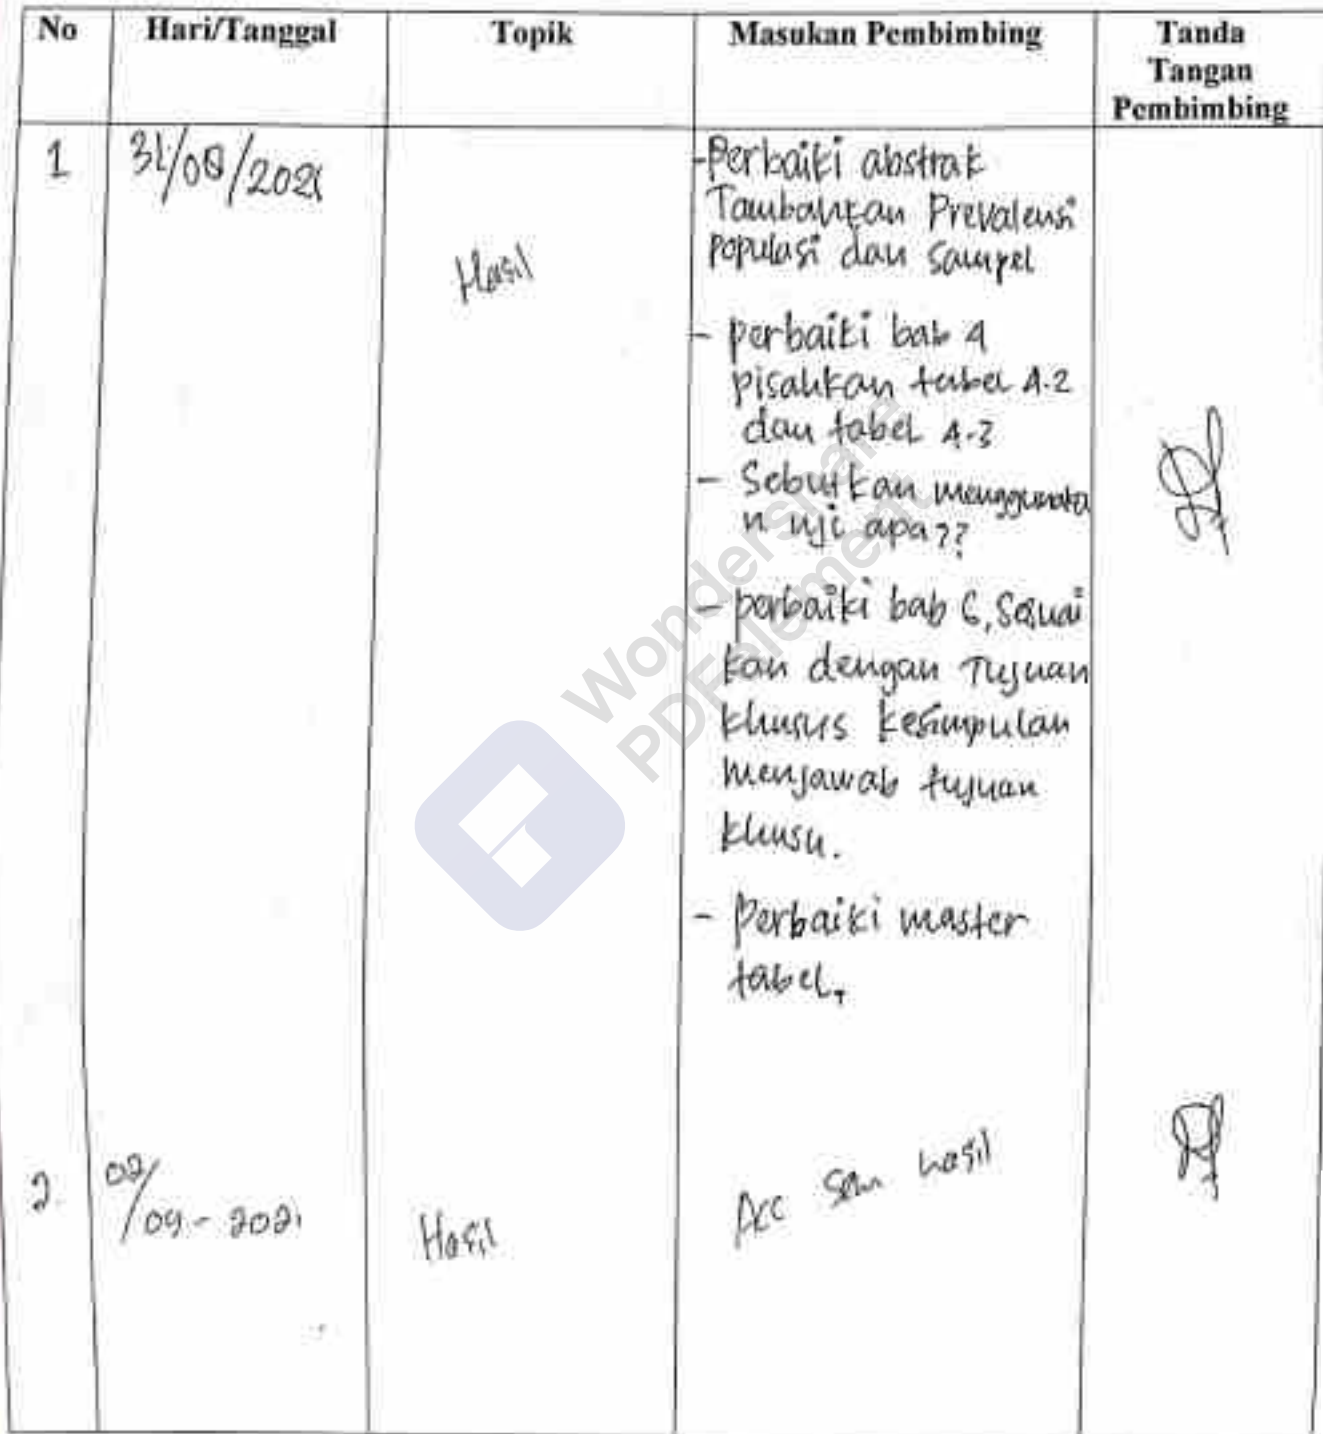 No Hari/Tanggal Topik Masukan Pembimbing Tanda
Tangan
Pembimbing
1 31/08/2021
Hasil
-Perbaiki abstrak
Tambahkan Prevalensi
Populasi dan Sampel
- perbaiki bab 4
pisahkan tabel 4.2
dan tabel 4.3
- Sebutkan menggunaka
n uji apa??
- perbaiki bab 6, Sesuai
kan dengan Tujuan
khusus kesimpulan
menjawab tujuan
khusu.
- Perbaiki master
tabel.
2. 02/09-2021 Hasil Acc Sem hasil
Wondershare
PDFelement